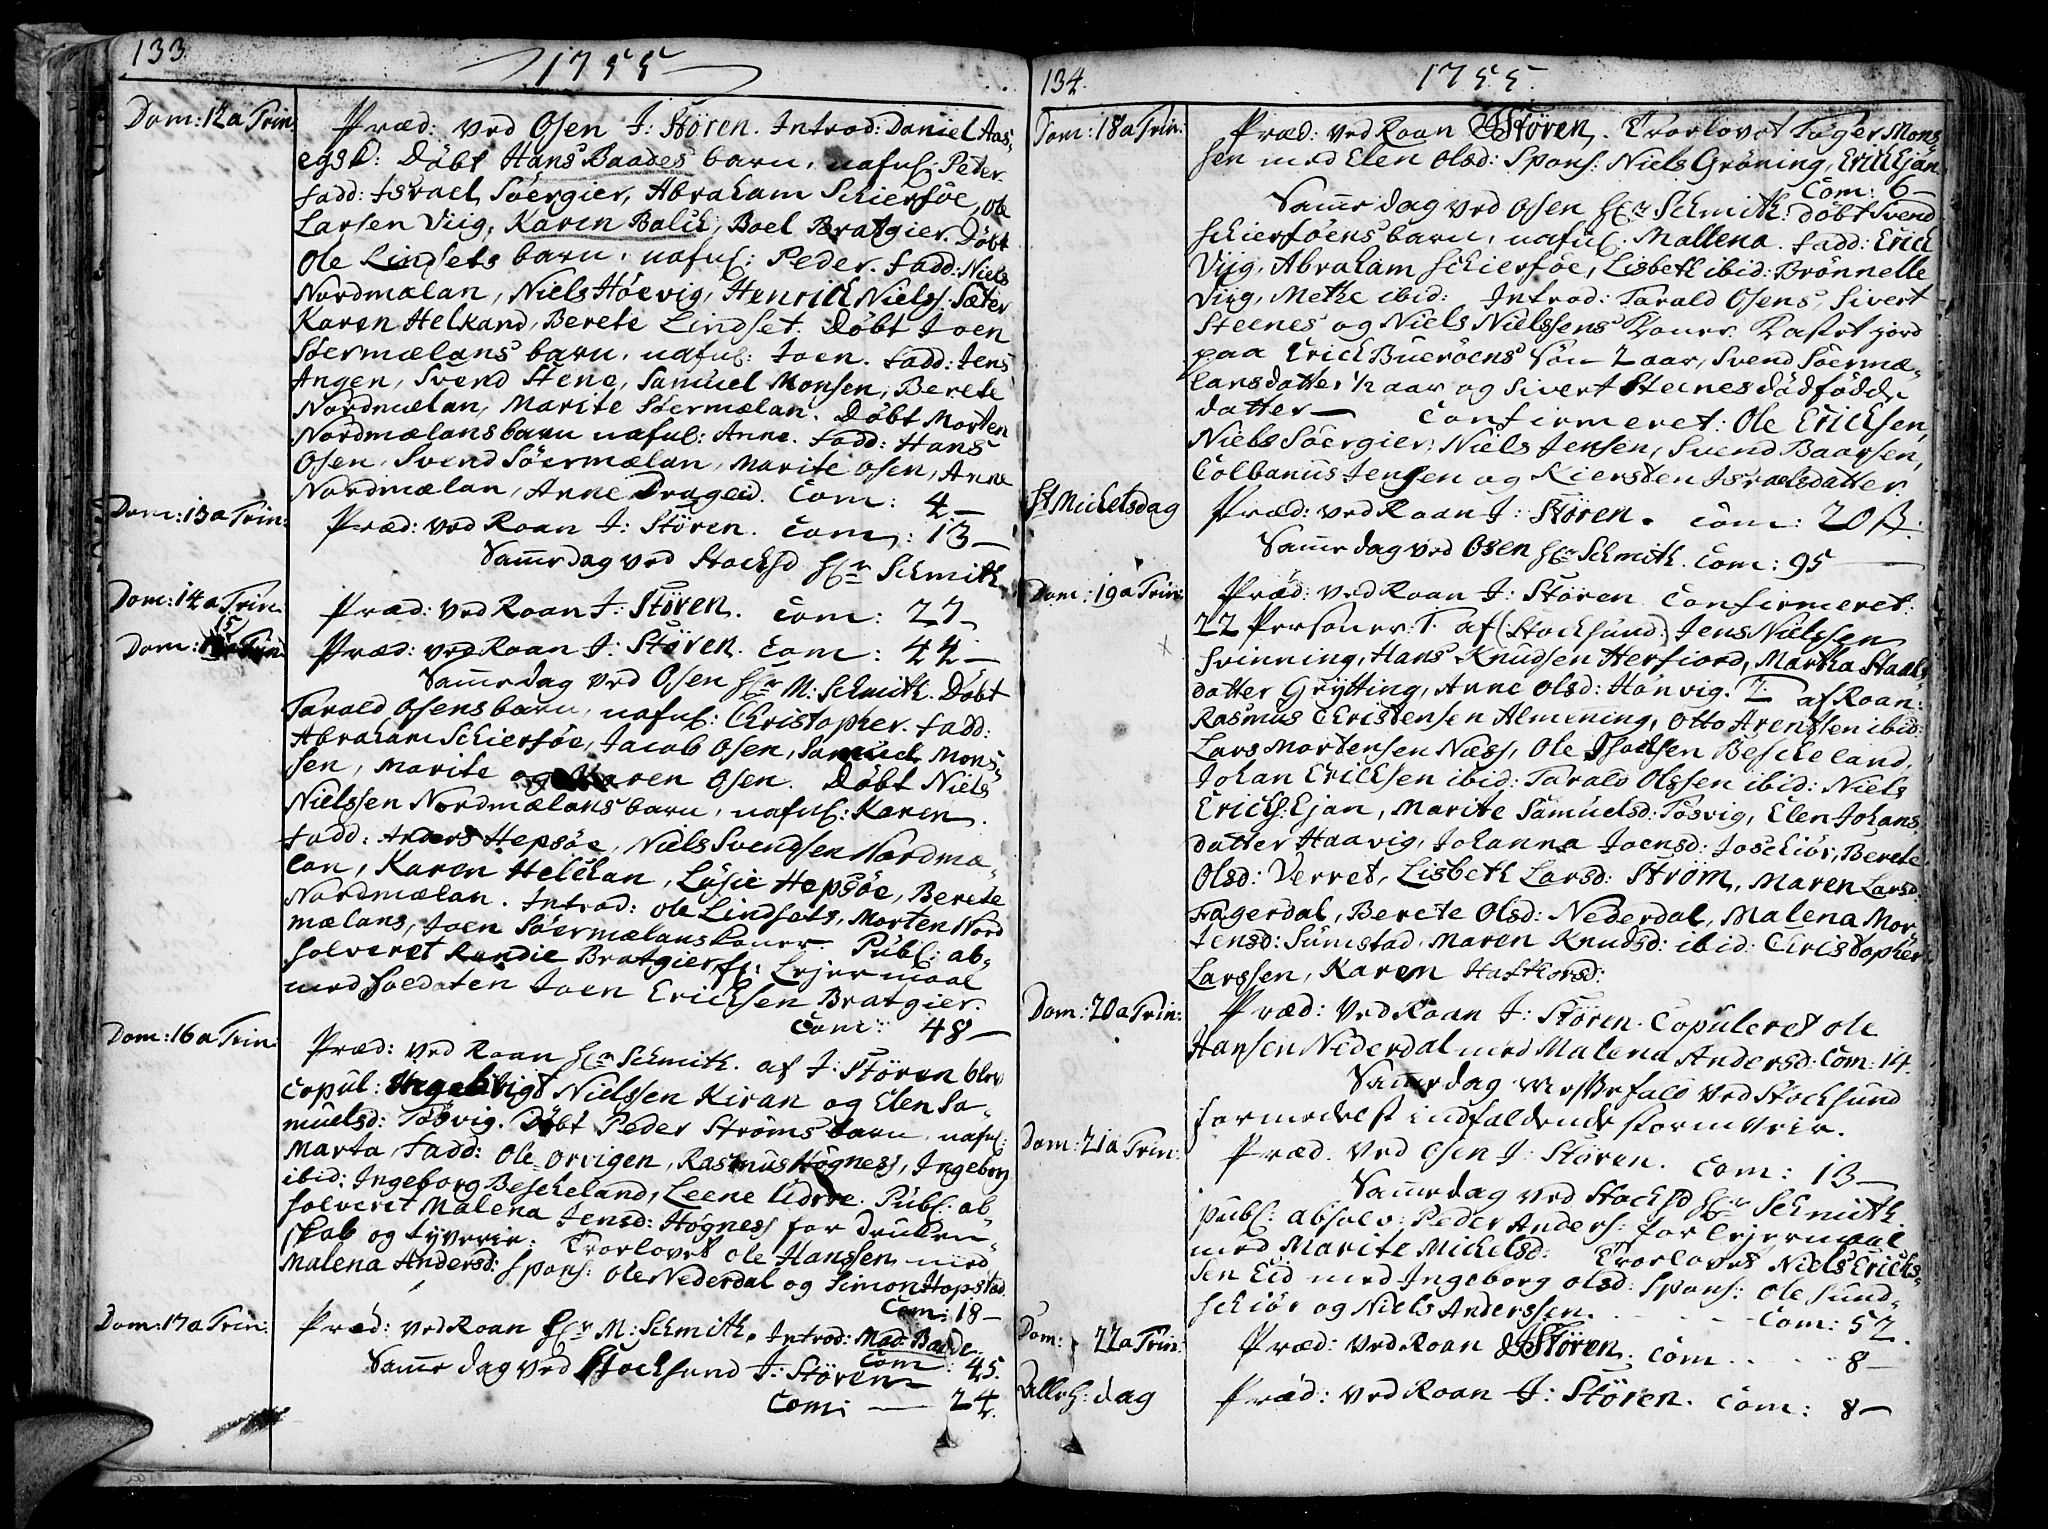 133.
1755
Dom: 12 a Trin
Præd: ved Osen J: Stören. Introd: Daniel Aas-
egsd: Döbt Hans Baades barn, nafnl: Peder
fadd: Israel Söergier, Abraham Schierföe, Ole
Larsen Viig, Karen Balch, Boel Bratgier. Döbt
Ole Lindsets barn, nafnl: Peder. fadd: Niels
Nordmælan, Niels Höevig, Henrich Nielss: Sæter
Karen Helkand, Berete Lindset. Döbt Joen
Söermælans barn, nafnl: Joen. fadd: Jens
Angen, Svend Stene, Samuel Monsen, Berete
Nordmælan, Marite Söermælan. Döbt Morten
Nordmælans barn nafnl: Anne. fadd: Hans
Osen, Svend Söermælan, Marite Osen, Anne
Nordmælan, Anne Drageid. Com: 4 —
Dom: 13 a Trin:
Præd: ved Roan J: Stören. Com: 13 —
Samme dag ved Stocksd Hr Schmith
Dom: 14 a Trin
Præd: ved Roan J: Stören. Com: 27 —
Dom: 15 a Trin
Præd: ved Roan J: Stören. Com: 44 —
Samme dag ved Osen Hr M: Schmith. Döbt
Tarald Osens barn, nafnl: Christopher. fadd:
Abraham Schierföe, Jacob Osen, Samuel Mons-
sen, Marite og Karen Osen. Döbt Niels
Nielssen Nordmælans barn, nafnl: Karen.
fadd: Anders Hepsöe, Niels Svendsen Nordmæ-
lan, Karen Helchan, Lusie Hepsöe, Berete
Nordmælan. Introd: Ole Lindsets, Morten Nord
mælans, Joen Söermælans Koner. Publ: ab-
solveret Randie Bratgier for Lejermaal
med Soldaten Joen Ericksen Bratgier.
Com: 48 —
Dom: 16 a Trin:
Præd: ved Roan Hr Schmith. af J: Stören blev
Copul: Ingebrigt Nielssen Kiran og Elen Sa-
muelsd: Tösvig. Döbt Peder Ströms barn, nafnl:
Marta, fadd: Ole Orvigen, Rasmus Högness, Ingeborg
ibid: Ingeborg Bescheland, Leene Udrøe. Publ: ab-
solveret Malena Jensd: Högness for Drucken-
skab og tyverie. Trorlovet Ole Hanssen med
Malena Andersd: Spons: Ole Nederdal og Simon Hopstad.
Com: 18 —
Dom: 17 a Trin:
Præd: ved Roan Hr M: Schmith. Introd: Mad: Baade
Com: 45.
Samme dag ved Stocksund J: Stören
Com: — 24.
134.
1755.
Dom: 18 a Trin:
Præd: ved Roan J Stören. Trorlovet Tøger Mons-
sen med Elen Olsd: Spons: Niels Gröning, Erick Ejan.
Com: 6 —
Samme dag ved Osen Hr Schmith: döbt Svend
Schierföens barn, nafnl. Mallena. fadd: Erick
Viig, Abraham Schierföe, Lisbeth ibid: Brönnelle
Viig, Methe ibid: Introd: Tarald Osens, Sivert
Steenes og Niels Nielssens Koner. Kastet jord
paa Erick Bueröens Sön 2 aar, Svend Söermæ-
lans datter 1/2 aar og Sivert Steenes dödfödde
datter — Confirmeret: Ole Ericksen,
Niels Söergier, Niels Jensen, Svend Baarsen,
Colbanus Jensen og Kiersten Israelsdatter.
St Michelsdag
Præd: ved Roan J: Stören. Com: 20 ß.
Samme dag ved Osen Hr Schmith. Com: 95 —
Dom: 19 a Trin:
Præd: ved Roan J: Stören Confirmeret:
22 Personer: T. af (: Stocksund:) Jens Nielssen
Svinning, Hans Knudsen Herfiord, Martha Staals
datter Grytting, Anne Olsd: Hönvig. 2: af Roan:
Rasmus Christensen Almening, Otto Arentsen ibid:
Lars Mortensen Næss, Ole Isacksen Bescheland,
Johan Ericksen ibid: Tarald Olssen ibid: Niels
Erichs: Ejan, Marite Samuelsd: Tösvig, Elen Johans
datter Haavig, Johanna Joensd: Joschiör, Berete
Olsd: Verret, Lisbeth Larsd: Ström, Maren Larsd
Fagerdal, Berete Olsd: Nederdal, Malena Mor-
tensd: Sumstad, Maren Knudsd: ibid: Christopher
Larssen, Karen Hafthorsd:
Dom: 20 a Trin:
Præd: ved Roan J: Stören. Copuleret Ole
Hansen Nederdal med Malena Andersd: Com: 14.
Samme dag Messefald ved Stocksund
formedelst indfaldende stormveir.
Dom: 21 a Trin:
Præd. ved Osen J: Stören. Com: 13 —
Samme dag ved Stocksd Hr Schmith
publ: absolv: Peder Anders: for lejermaal
med Marite Michelsd: Trorlovet Niels Ericks-
sen Eid med Ingeborg Olsd: Spons: Ole Sund-
schiör og Niels Anderssen. Com: 52.
Dom: 22 a Trin:
Præd: ved Roan J Stören. Com . . . . 8 —
Alleh: dag
Præd: ved Roan J: Stören. Com: 8 —